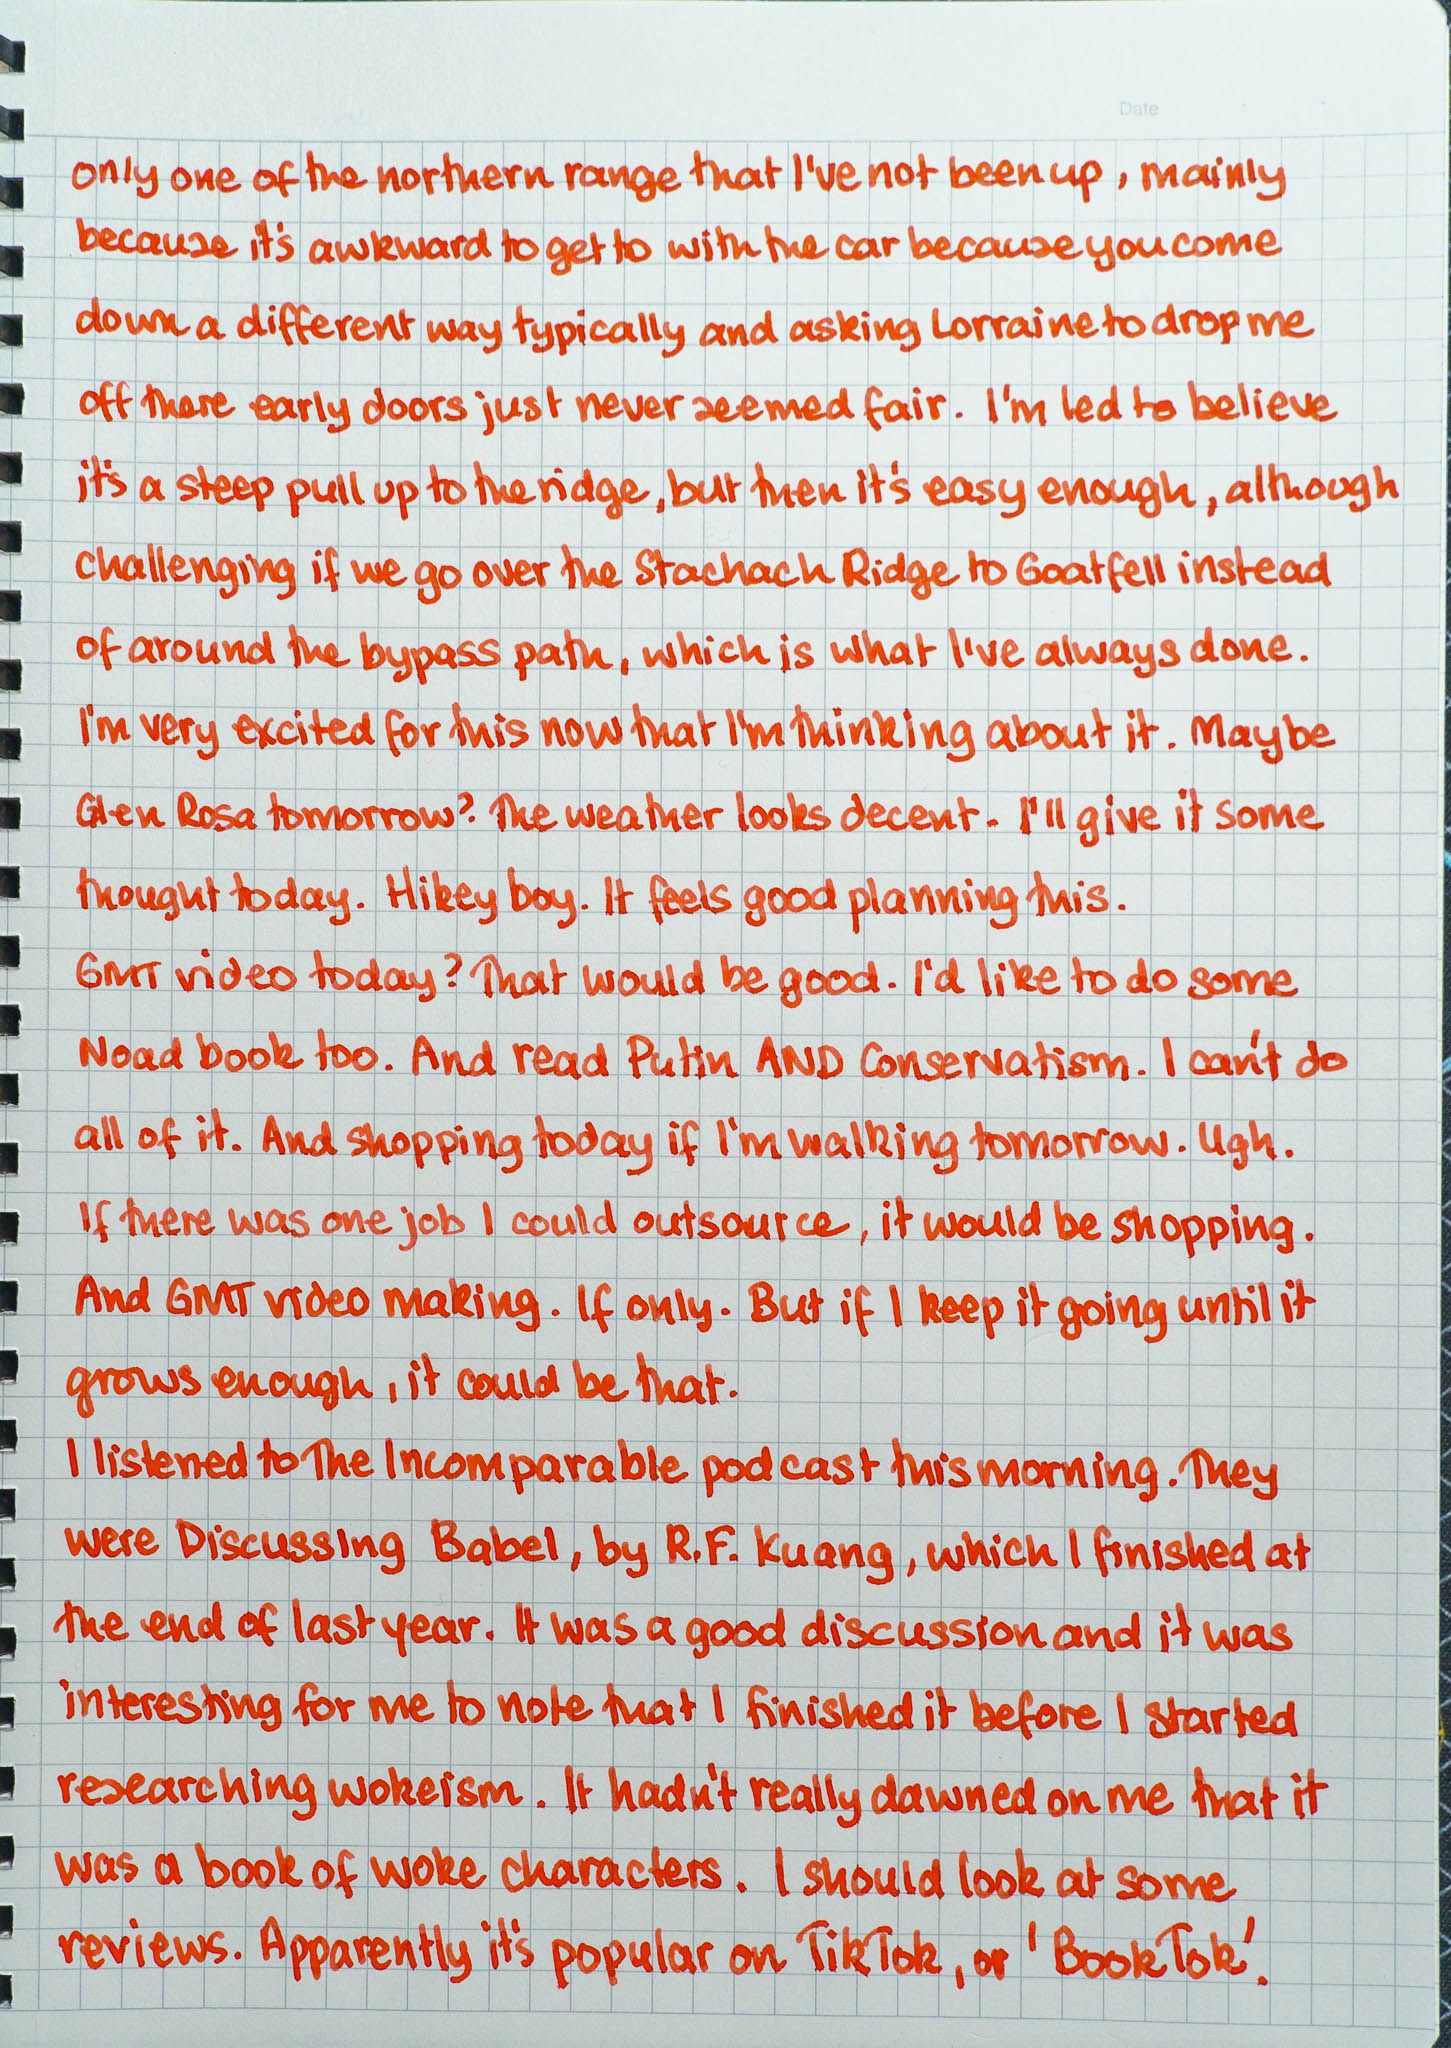 Date
only one of the northern range that I've not been up, mainly
because it's awkward to get to with the car because you come
down a different way typically and asking Lorraine to drop me
off there early doors just never seemed fair. I'm led to believe
it's a steep pull up to the ridge, but then it's easy enough, although
challenging if we go over the Stachach Ridge to Goatfell instead
of around the bypass path, which is what I've always done.
I'm very excited for this now that I'm thinking about it. Maybe
Glen Rosa tomorrow? The weather looks decent. I'll give it some
thought today. Hikey boy. It feels good planning this.
GMT video today? That would be good. I'd like to do some
Noad book too. And read Putin AND Conservatism. I can't do
all of it. And shopping today if I'm walking tomorrow. Ugh.
If there was one job I could outsource, it would be shopping.
And GMT video making. If only. But if I keep it going until it
grows enough, it could be that.
I listened to The Incomparable podcast this morning. They
were Discussing Babel, by R.F. Kuang, which I finished at
the end of last year. It was a good discussion and it was
interesting for me to note that I finished it before I started
researching wokeism. It hadn't really dawned on me that it
was a book of woke characters. I should look at some
reviews. Apparently it's popular on TikTok, or 'BookTok'.